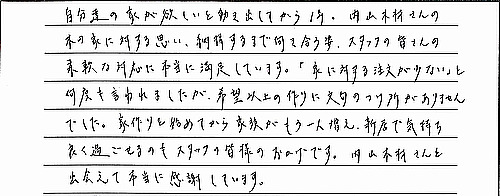 自分達の家が欲しいと動き出してから1年。内山木材さんの
木の家に対する思い、納得するまで何て合う姿、スタッフの皆さんの
柔軟な対応に本当に満足しています。「家に対する注文が少ない」と
何度も言われましたが、希望以上の作りに文句のつけ所がありません
でした。家作りを始めてから家族がもう一人増え、新居で気持ち
良く過ごせるのもスタッフの皆様のおかげです。内山木材さんと
出会えて本当に感謝しています。